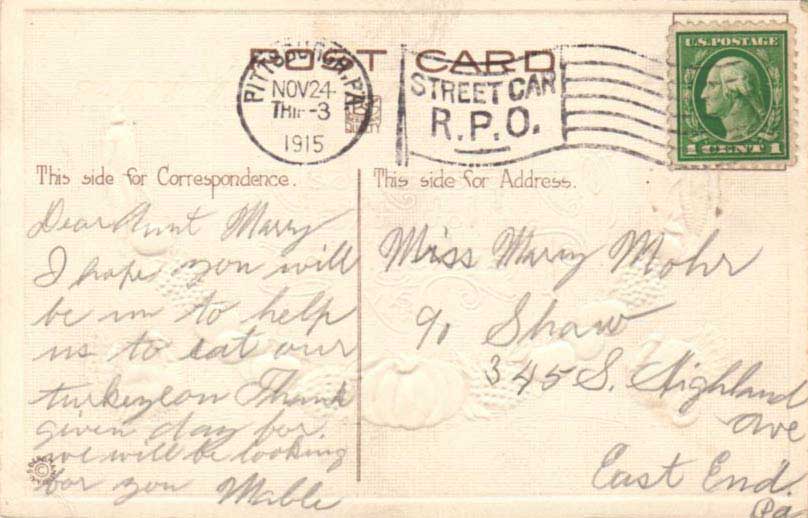 POST CARD
PITTSBURGH, PA.
NOV 24
3
1915
STREET CAR
R.P.O.
U.S. POSTAGE
1 CENT 1
This side for Correspondence.
This side for Address.
Dear Aunt Marry
I hope you will
be in to help
us to eat our
turkey on Thank
given day for
we will be looking
for you Mable
Miss Marry Mohr
℅ Shaw
345 S. Highland
Ave
East End.
Pa